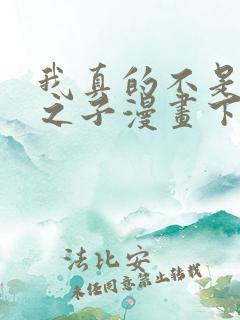 我真的不是
之子漫畫下
法比安
未经同意禁止转载